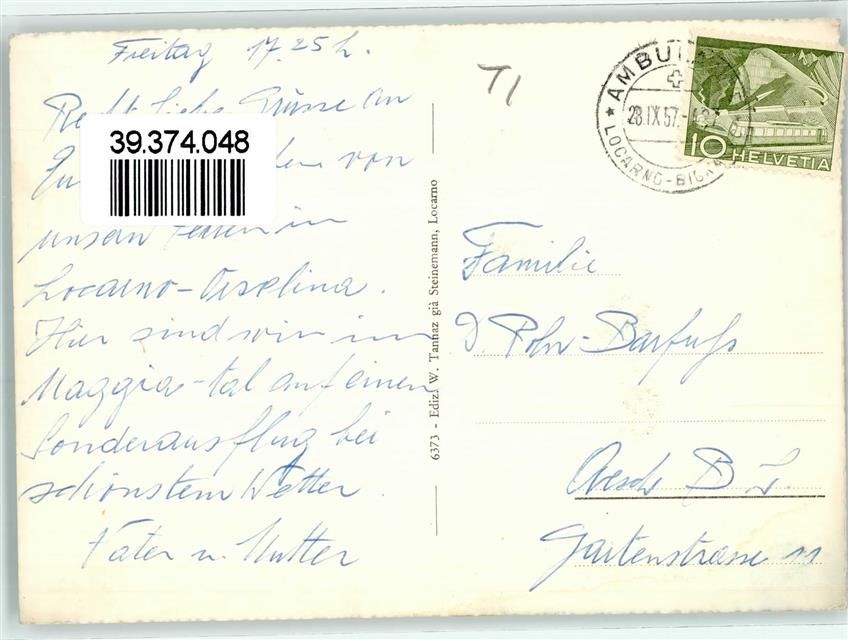 Freitag 17.25 h.
Recht liebe Grüsse an
von
unsern Ferien in
Locarno-Orselina.
Hier sind wir im
Maggia-tal auf einem
Sonderausflug bei
schönstem Wetter.
Vater u. Mutter
39.374.048
6373 - Ediz. W. Tannaz già Steinemann, Locarno
TI
AMBUL
28.IX.57.
LOCARNO-BI
10 HELVETIA
Familie
Barfuss
Aesch B L.
Gartenstrasse 11